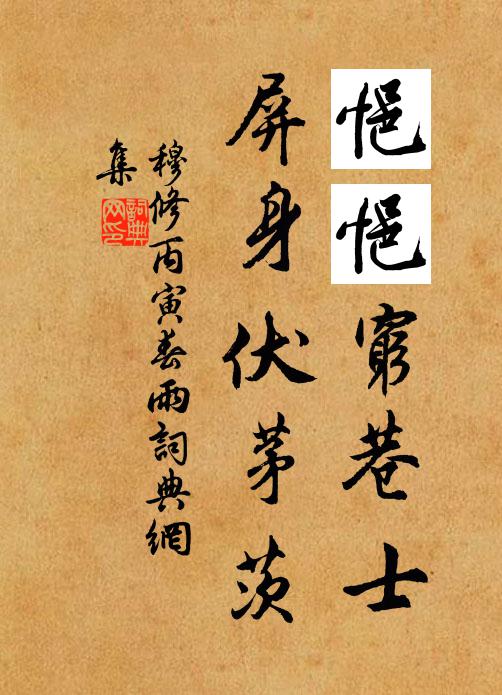 悒悒窮巷士
屏身伏茅茨
穆修丙寅春雨詞典網
集
詞典
网印